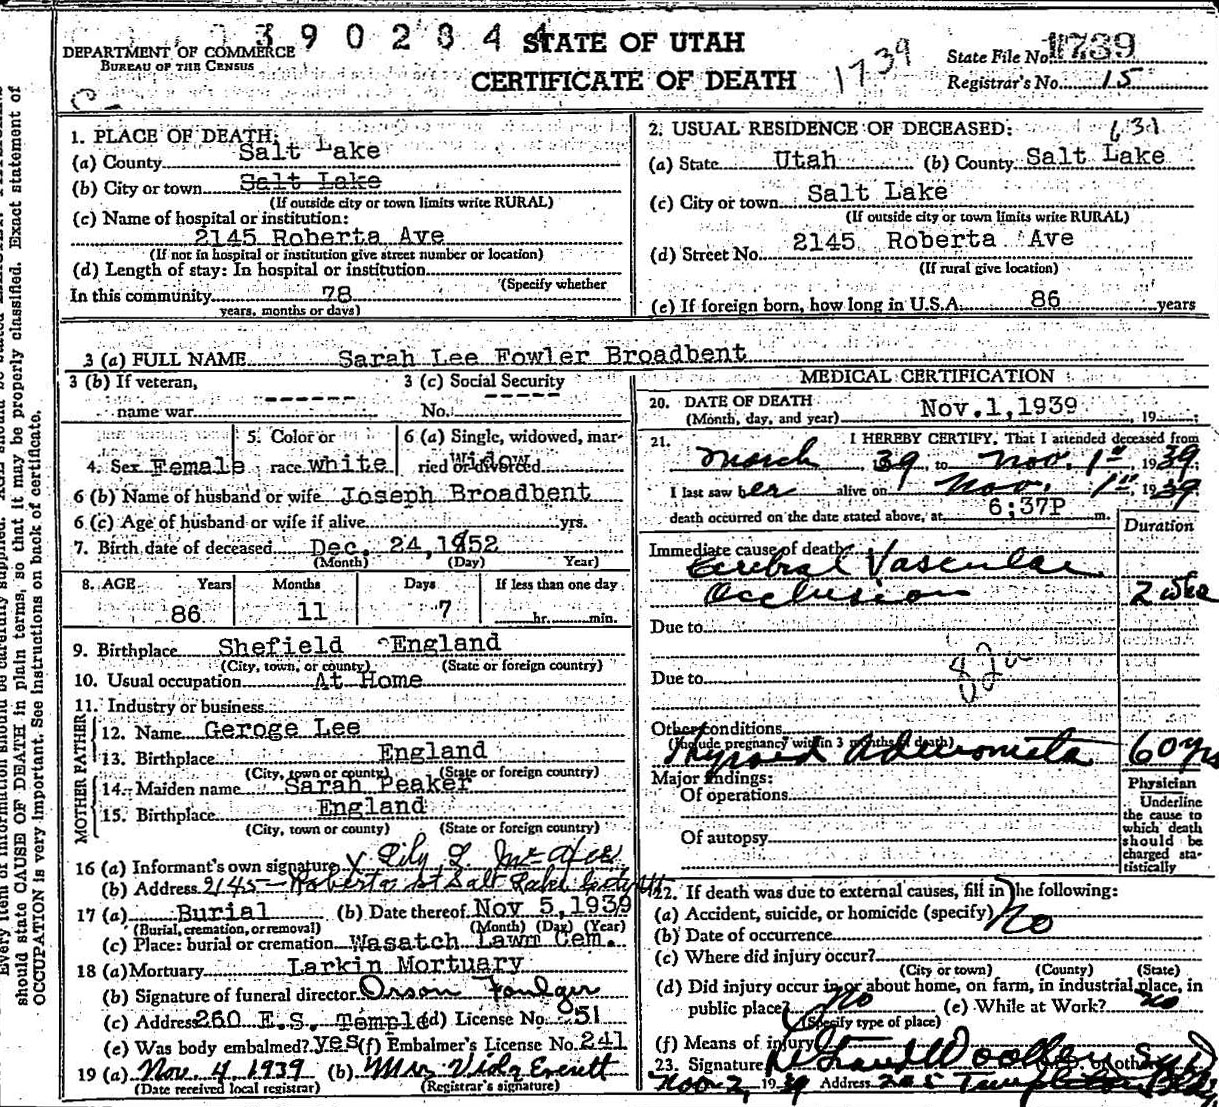 3902844
STATE OF UTAH
DEPARTMENT OF COMMERCE
BUREAU OF THE CENSUS
CERTIFICATE OF DEATH
1739
State File No. 1739
Registrar's No. 15
1. PLACE OF DEATH:
(a) County Salt Lake
(b) City or town Salt Lake
(If outside city or town limits write RURAL)
(c) Name of hospital or institution:
2145 Roberta Ave
(If not in hospital or institution give street number or location)
(d) Length of stay: In hospital or institution
(Specify whether
In this community 78
years, months or days)
2. USUAL RESIDENCE OF DECEASED: 631
(a) State Utah (b) County Salt Lake
(c) City or town Salt Lake
(If outside city or town limits write RURAL)
(d) Street No. 2145 Roberta Ave
(If rural give location)
(e) If foreign born, how long in U.S.A. 86 years
3 (a) FULL NAME Sarah Lee Fowler Broadbent
3 (b) If veteran, 3 (c) Social Security
name war ------ No. -----
4. Sex Female 5. Color or race white 6 (a) Single, widowed, married or divorced Widow
6 (b) Name of husband or wife Joseph Broadbent
6 (c) Age of husband or wife if alive yrs.
7. Birth date of deceased Dec. 24, 1852
(Month) (Day) Year)
8. AGE Years Months Days If less than one day
86 11 7 hr. min.
9. Birthplace Shefield England
(City, town, or county) (State or foreign country)
10. Usual occupation At Home
11. Industry or business
FATHER
12. Name Geroge Lee
13. Birthplace England
(City, town or county) (State or foreign country)
MOTHER
14. Maiden name Sarah Peaker
15. Birthplace England
(City, town or county) (State or foreign country)
16 (a) Informant's own signature X Lily L.
(b) Address 2145 Roberta St Salt Lake City
17 (a) Burial (b) Date thereof Nov 5, 1939
(Burial, cremation, or removal) (Month) (Day) (Year)
(c) Place: burial or cremation Wasatch Lawn Cem.
18 (a) Mortuary Larkin Mortuary
(b) Signature of funeral director Orson Foulger
(c) Address 260 E.S. Temple (d) License No. 51
(e) Was body embalmed? yes (f) Embalmer's License No. 241
19 (a) Nov. 4 1939 (b) Mrs Vida Everett
(Date received local registrar) (Registrar's signature)
MEDICAL CERTIFICATION
20. DATE OF DEATH
(Month, day, and year) Nov. 1, 1939, 19
21. I HEREBY CERTIFY, That I attended deceased from
March 39 to Nov. 1st, 1939;
I last saw her alive on Nov. 1st, 1939
death occurred on the date stated above, at 6:37P m.
Duration
Immediate cause of death: Cerebral Vascular
Occlusion 2 wks
Due to
Due to
Other conditions
(Include pregnancy within 3 months of death)
Thyroid Adenomata 60 yrs
Major findings:
Of operations
Of autopsy
Physician
Underline
the cause to
which death
should be
charged sta-
tistically
22. If death was due to external causes, fill in the following:
(a) Accident, suicide, or homicide (specify) No
(b) Date of occurrence
(c) Where did injury occur?
(City or town) (County) (State)
(d) Did injury occur in or about home, on farm, in industrial place, in
public place? no (e) While at Work? no
(Specify type of place)
(f) Means of injury
23. Signature Woolley
Nov 2, 1939 Address 205 Templeton Bldg.
should state CAUSE OF DEATH in plain terms, so that it may be properly classified. Exact statement of
OCCUPATION is very important. See instructions on back of certificate.